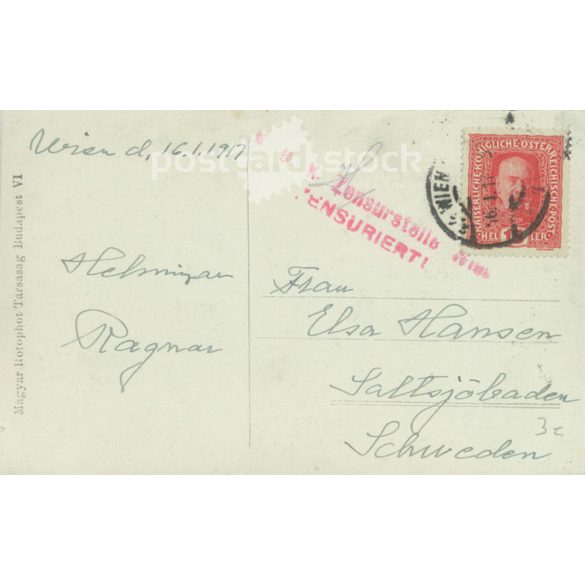 Wien d, 16.1.1917
postcard.stock
K. u. K. Zensurstelle Wien
ZENSURIERT!
KAISERLICHE KÖNIGLICHE ÖSTERREICHISCHE POST
HELLER
WIEN
Helmizar
Ragnar
Frau
Elsa Hansen
Saltsjöbaden
Schweden
3c
Magyar Rotophot Társaság Budapest VI